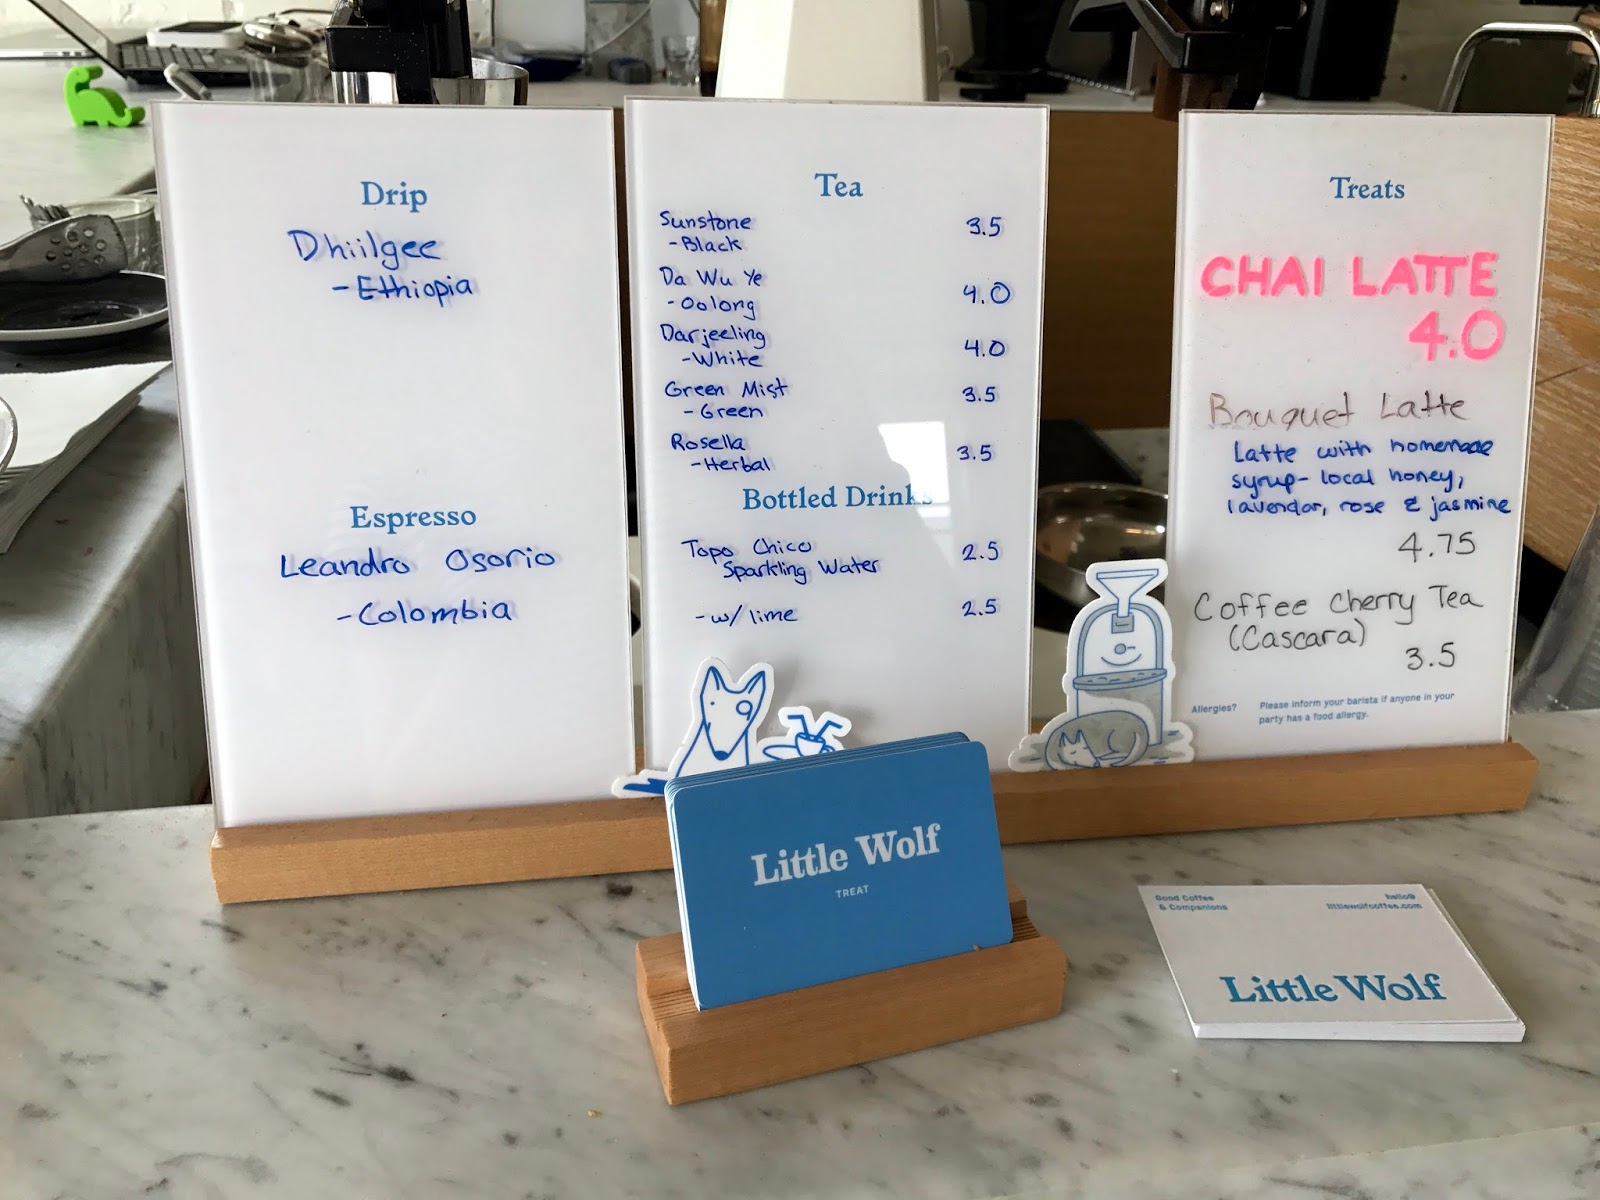 Drip
Dhiilgee
-Ethiopia
Espresso
Leandro Osorio
-Colombia
Tea
Sunstone 3.5
-Black
Da Wu Ye 4.0
-Oolong
Darjeeling 4.0
-White
Green Mist 3.5
-Green
Rosella 3.5
-Herbal
Bottled Drinks
Topo Chico 2.5
Sparkling Water
-w/ lime 2.5
Treats
CHAI LATTE
4.0
Bouquet Latte
Latte with homemade
syrup- local honey,
lavendar, rose & jasmine
4.75
Coffee Cherry Tea
(Cascara)
3.5
Allergies? Please inform your barista if anyone in your
party has a food allergy.
Little Wolf
TREAT
Good Coffee hello@
& Companions littlewolfcoffee.com
Little Wolf